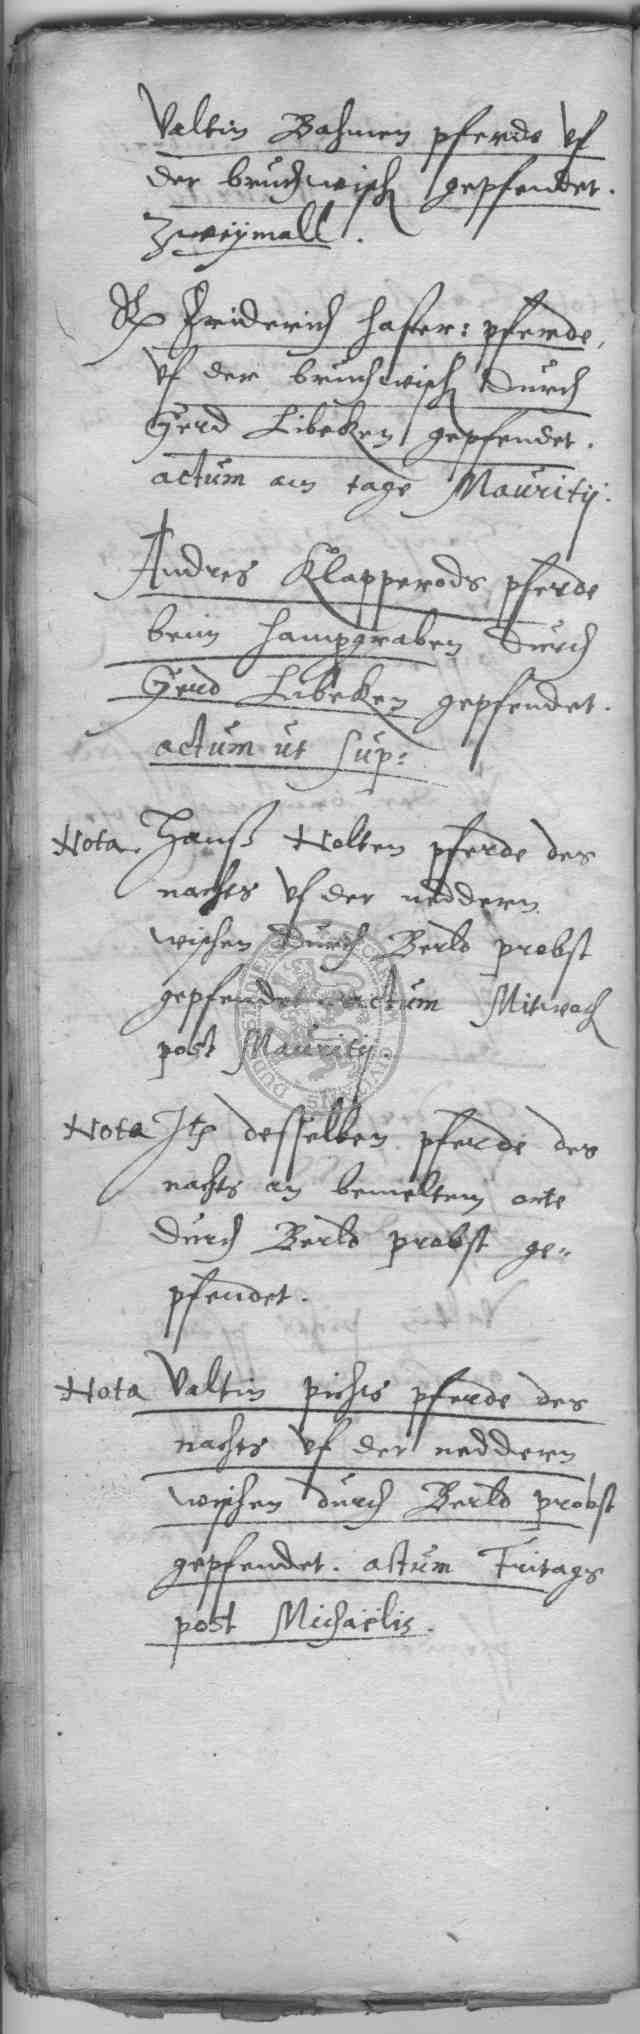 Valtin Bahmen pferde vf
der bruchwisch gepfendet.
Zweymall.
Friderich hafer: pferde,
vf der bruchwisch durch
Gerd Libeken gepfendet.
actum am tage Mauritij.
Andres Klapperods pferde
beim hampgraben durch
Gerd Libeken gepfendet.
actum ut sup:
Nota. Hanß Nolten pferde des
nachts vf der neddern
wischen durch Berld probst
gepfendet actum Mitwoch
post Mauritij
Nota Itz desselben pferde des
nachts an bemeltem orte
durch Berld probst ge-
pfendet.
Nota Valtin pichts pferde des
nachts vf der neddern
wischen durch Berld probst
gepfendet. actum Fritags
post Michaëlis.